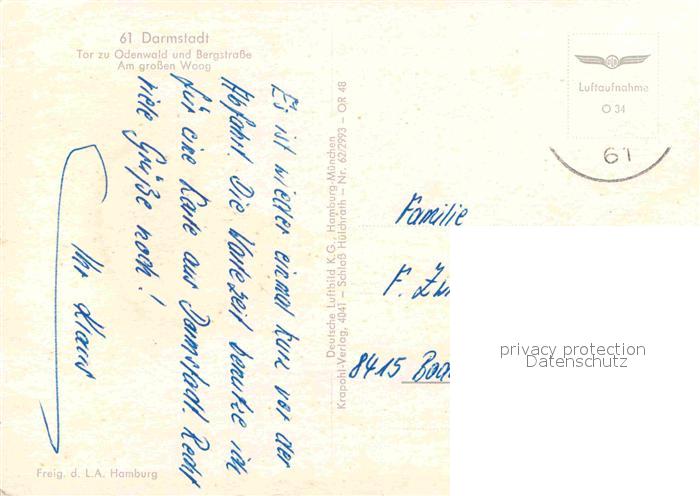 61 Darmstadt
Tor zu Odenwald und Bergstraße
Am großen Woog
Es ist wieder einmal kurz vor der
Abfahrt. Die Wartezeit benutze ich
für eine Karte aus Darmstadt. Recht
viele Grüße noch!
Ihr Klaus
Freig. d. L.A. Hamburg
Deutsche Luftbild K.G., Hamburg-München
Krapohl-Verlag, 4041 – Schloß Hülchrath – Nr. 62/2993 – OR 48
Luftaufnahme
O 34
61
Familie
F. Zw
8415 Bod
privacy protection
Datenschutz